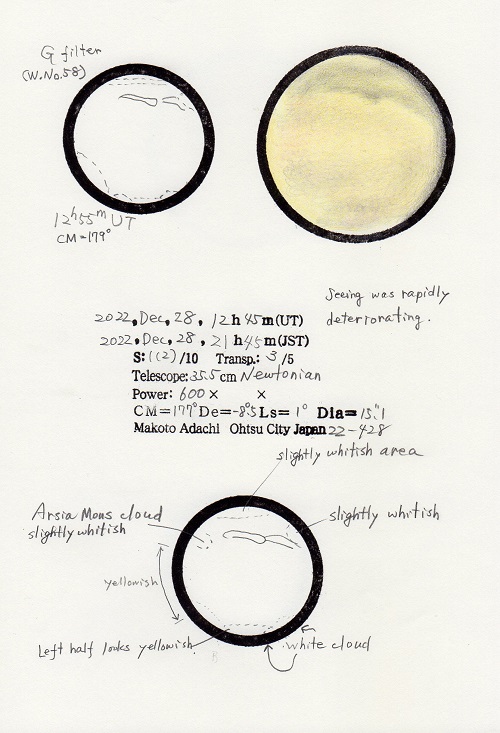 G filter
(W.No.58)
12h55m UT
CM=179°
Seeing was rapidly
deteriorating.
2022, Dec, 28, 12h45m(UT)
2022, Dec, 28, 21h45m(JST)
S: 1(2)/10 Transp.: 3/5
Telescope: 35.5cm Newtonian
Power: 600× ×
CM=177° De=-8.°5 Ls= 1° Dia=15."1
Makoto Adachi Ohtsu City Japan 22-428
slightly whitish area
Arsia Mons cloud
slightly whitish
slightly whitish
yellowish
Left half looks yellowish.
white cloud